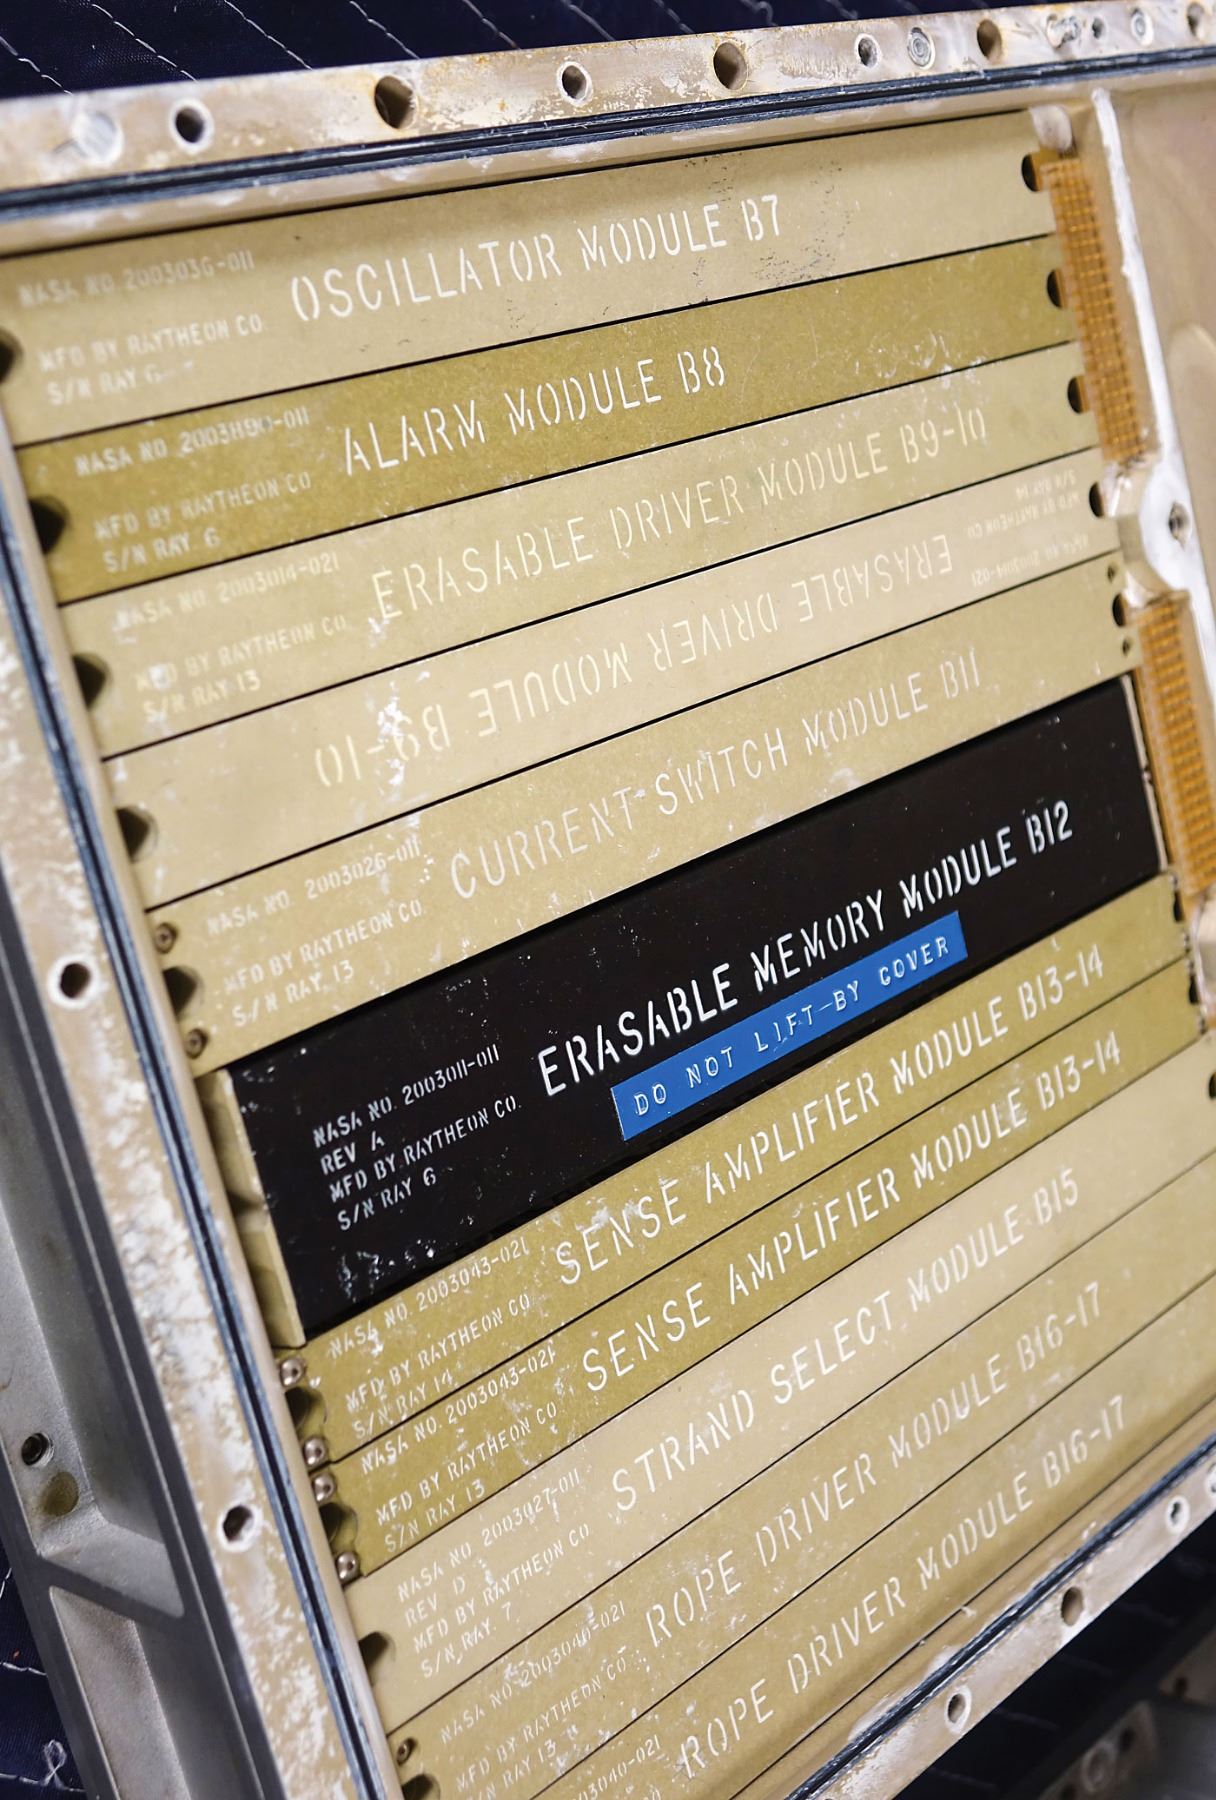 NASA NO. 2003036-011
MFD BY RAYTHEON CO.
S/N RAY
OSCILLATOR MODULE B7
NASA NO. 2003890-011
MFD BY RAYTHEON CO
S/N RAY 6
ALARM MODULE B8
NASA NO. 2003014-021
MFD BY RAYTHEON CO.
S/N RAY 13
ERASABLE DRIVER MODULE B9-10
NASA NO. 2003014-021
MFD BY RAYTHEON CO.
S/N RAY 14
ERASABLE DRIVER MODULE B9-10
NASA NO. 2003026-011
MFD BY RAYTHEON CO.
S/N RAY 13
CURRENT SWITCH MODULE B11
NASA NO. 2003011-011
REV A
MFD BY RAYTHEON CO.
S/N RAY 6
ERASABLE MEMORY MODULE B12
DO NOT LIFT-BY COVER
NASA NO. 2003043-021
MFD BY RAYTHEON CO
S/N RAY 14
SENSE AMPLIFIER MODULE B13-14
NASA NO. 2003043-021
MFD BY RAYTHEON CO
S/N RAY 13
SENSE AMPLIFIER MODULE B13-14
NASA NO 2003027-011
REV D
MFD BY RAYTHEON CO
S/N RAY 7
STRAND SELECT MODULE B15
NASA NO 2003040-021
MFD BY RAYTHEON CO
S/N RAY 13
ROPE DRIVER MODULE B16-17
2003040-021
ROPE DRIVER MODULE B16-17